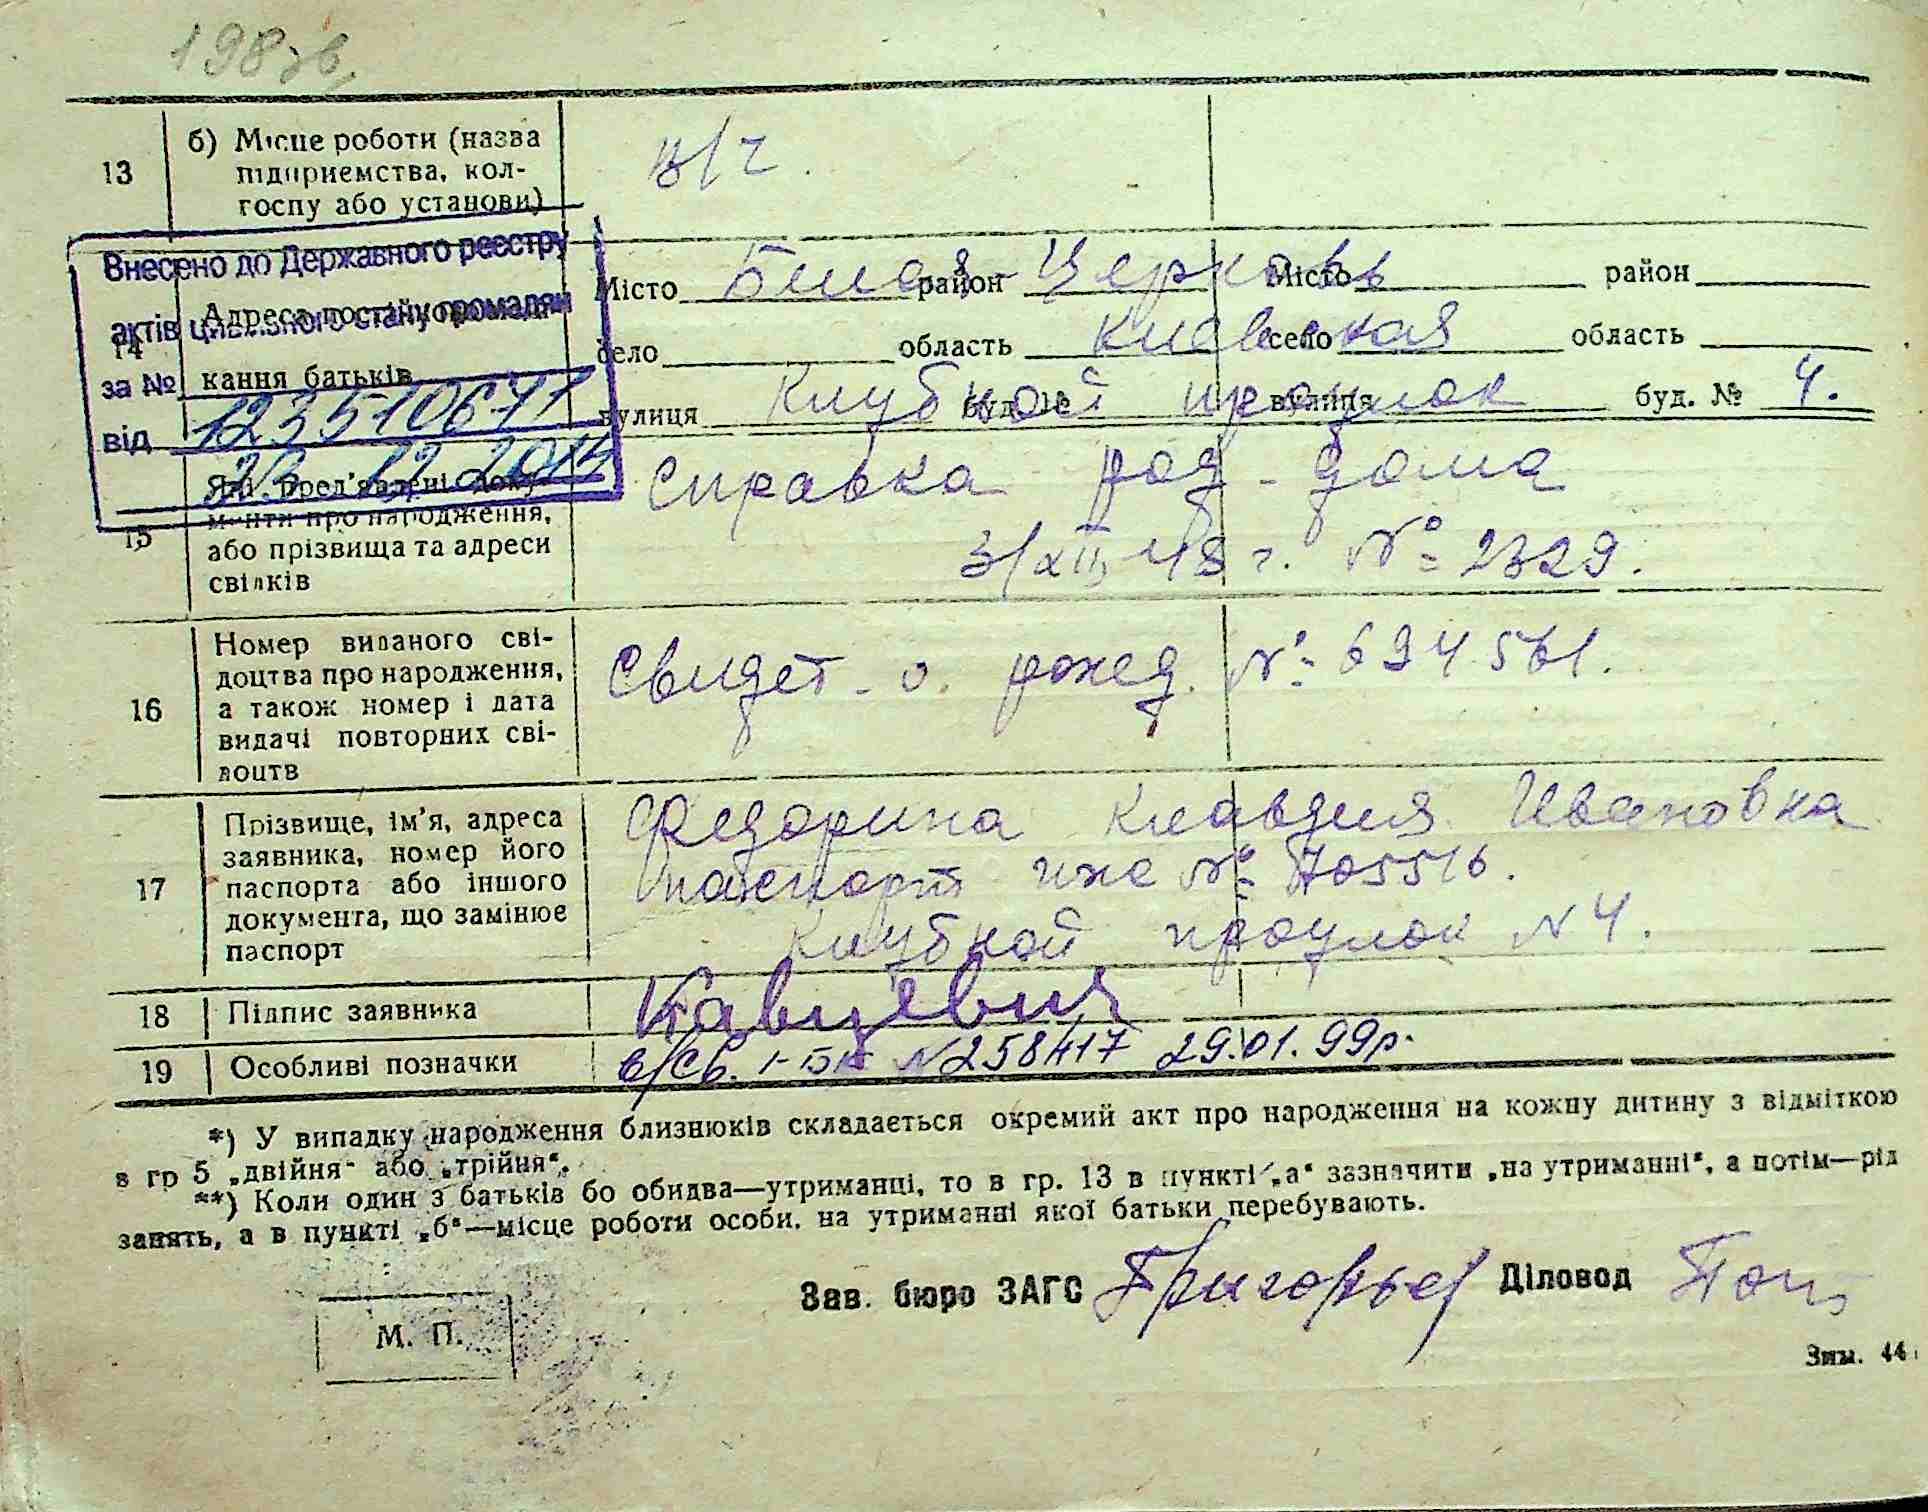 198зв.
13 б) Місце роботи (назва
підприємства, кол-
госпу або установи)
в/ч.
Внесено до Державного реєстру
актів цивільного стану громадян
за №
123510671
від
12. 2014
14 Адреса постійного
кання батьків
Місто Белая район Церковь Місто район
село область Киевская село область
вулиця Клубной буд. № проулок вулиця буд. № 4.
15 Які пред'явлені доку-
менти про народження,
або прізвища та адреси
свідків
Справка род-дома
3/XII 48 г. № 2329.
16 Номер виданого сві-
доцтва про народження,
а також номер і дата
видачі повторних сві-
доцтв
Свидет-о. рожд. № 694561.
17 Прізвище, ім'я, адреса
заявника, номер його
паспорта або іншого
документа, що замінює
паспорт
Федорина Клавдия Ивановна
паспорт № 705516.
Клубной проулок N 4.
18 Підпис заявника
19 Особливі позначки в/св. I-БК №258417 29.01.99р.
*) У випадку народження близнюків складається окремий акт про народження на кожну дитину з відміткою
в гр 5 „двійня“ або „трійня“.
**) Коли один з батьків бо обидва—утриманці, то в гр. 13 в пункті „а“ зазначити „на утриманні“, а потім—рід
занять, а в пункті „б“—місце роботи особи, на утриманні якої батьки перебувають.
Зав. бюро ЗАГС Діловод
М. П.
Зам. 44